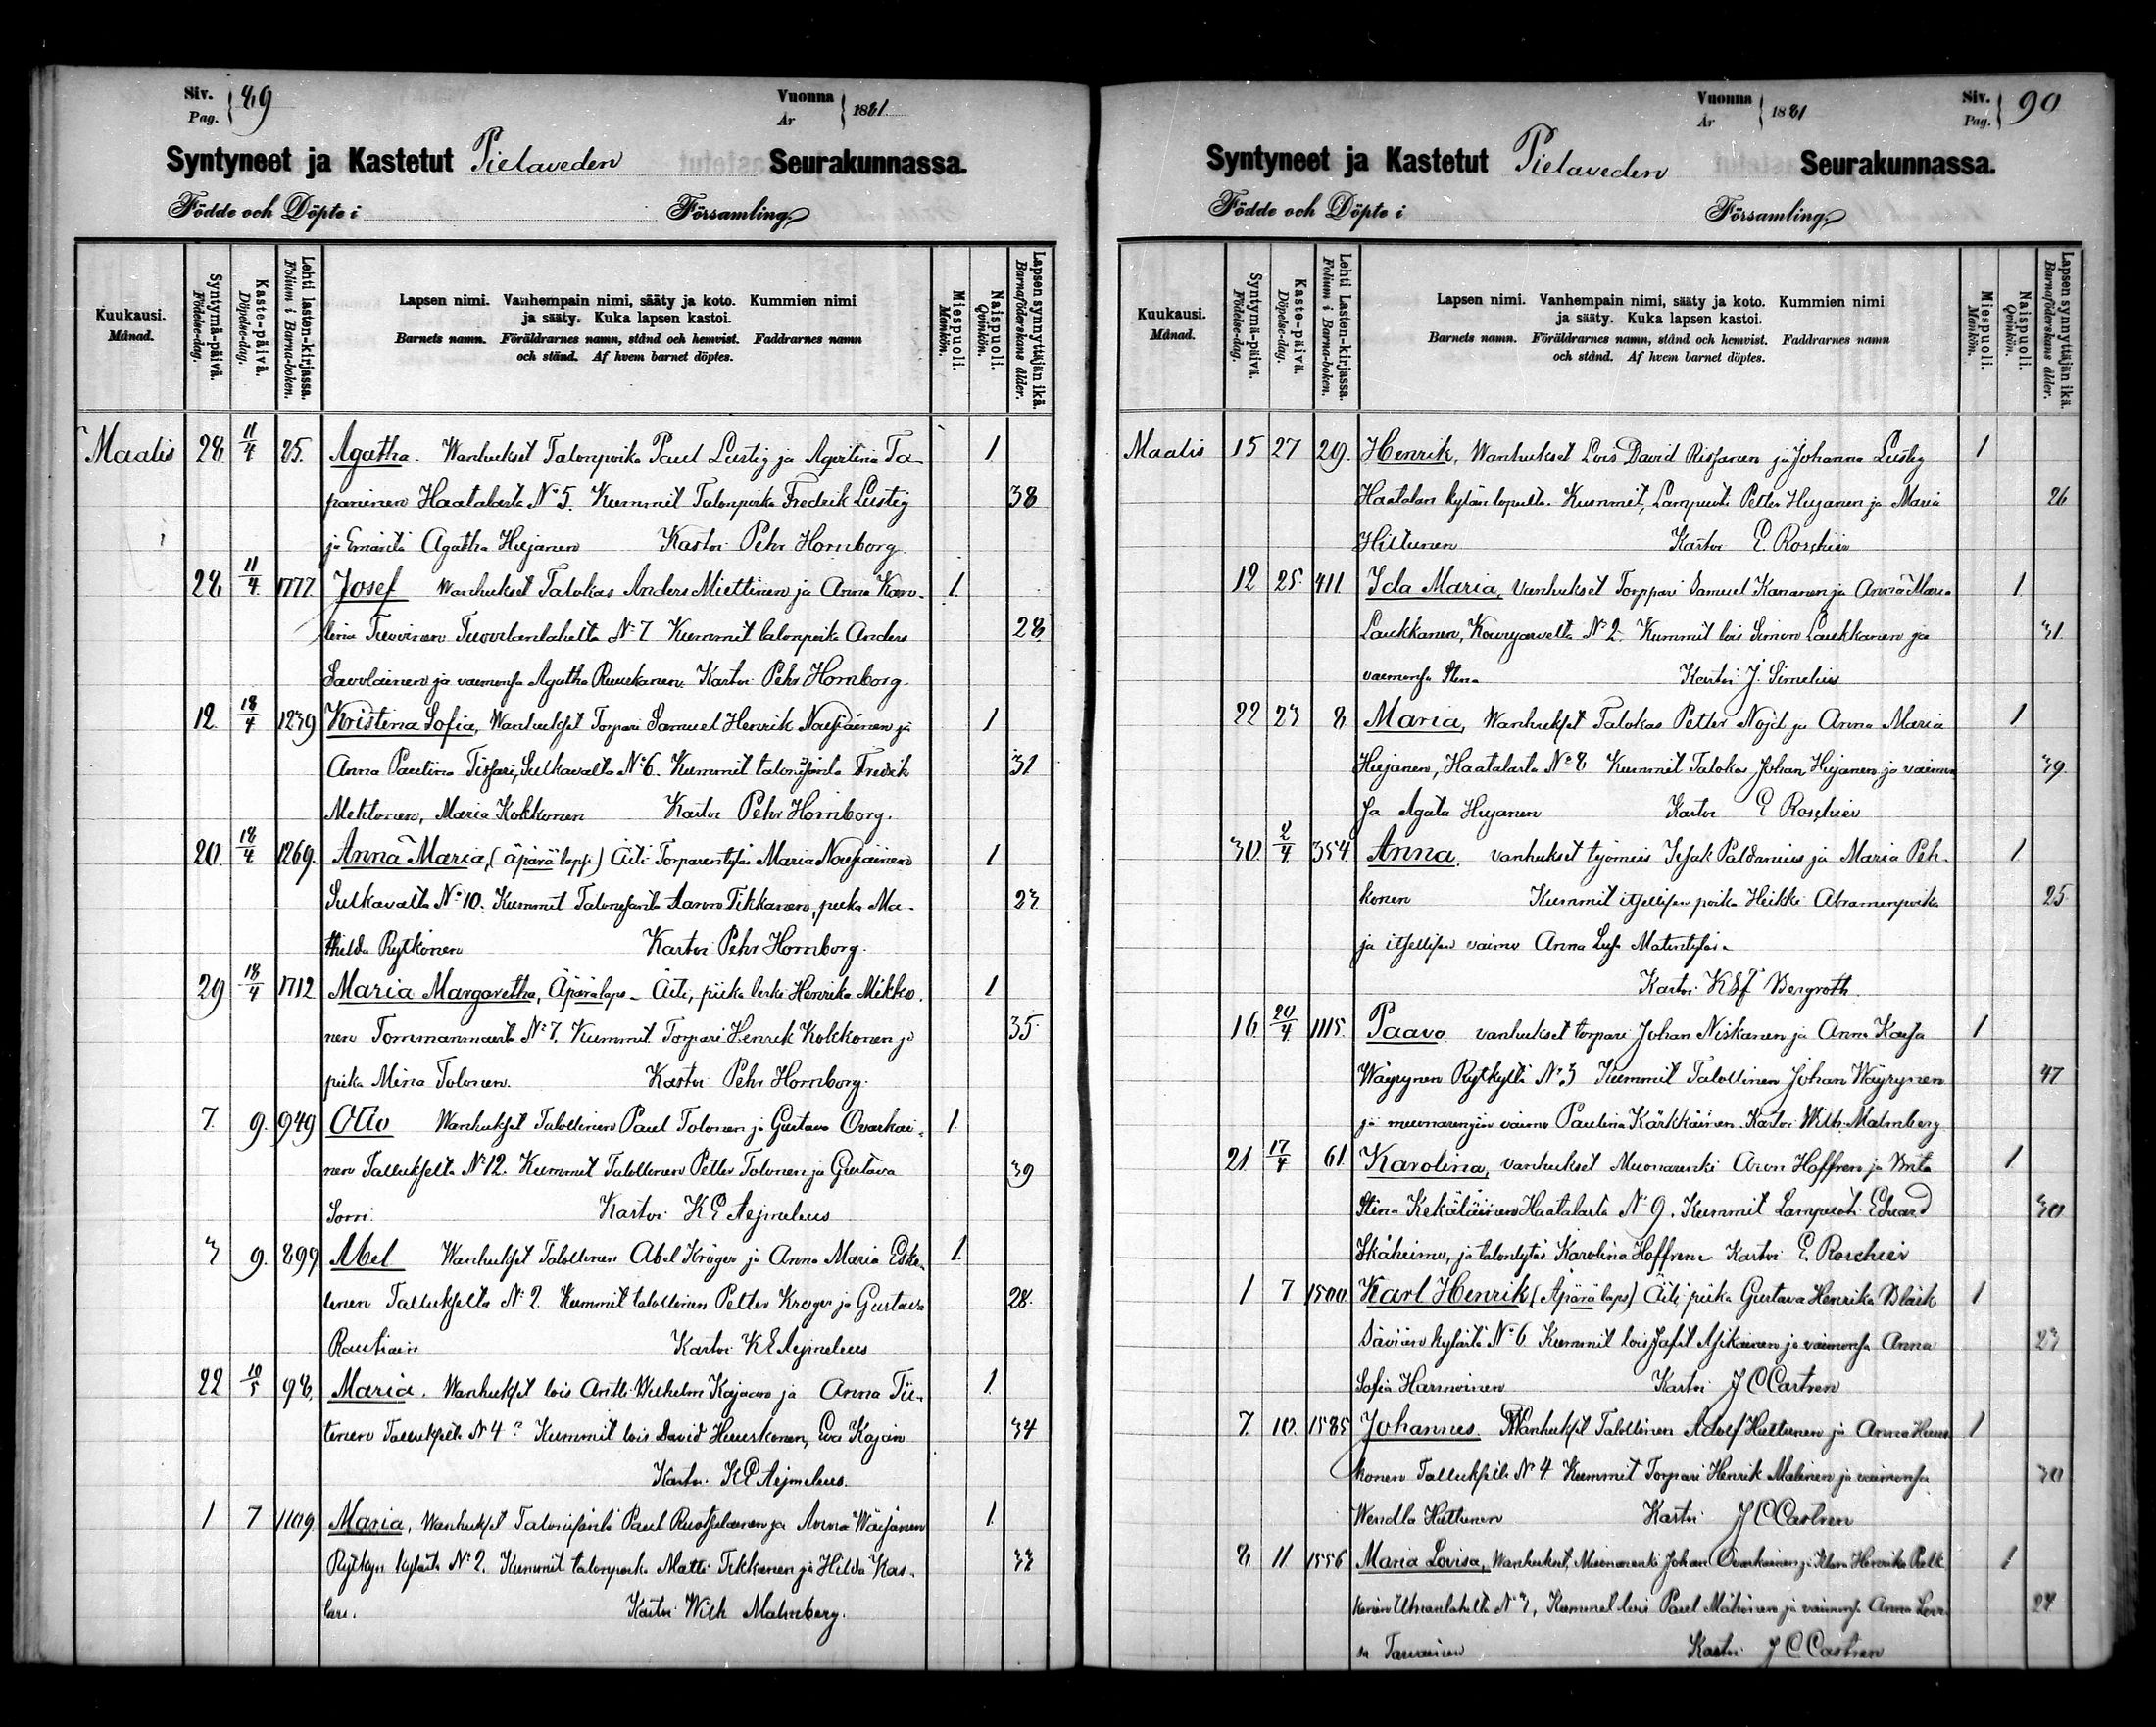 Siv. Pag. 89
Vuonna År 1881.
Syntyneet ja Kastetut Pielaveden Seurakunnassa.
Födde och Döpte i Församling.
Kuukausi. Månad.
Syntymä-päivä. Födelse-dag.
Kaste-päivä. Döpelse-dag.
Lehti lasten-kirjassa. Folium i Barna-boken.
Lapsen nimi. Vanhempain nimi, sääty ja koto. Kummien nimi
ja sääty. Kuka lapsen kastoi.
Barnets namn. Föräldrarnes namn, stånd och hemvist. Faddrarnes namn
och stånd. Af hvem barnet döptes.
Miespuoli. Mankön.
Naispuoli. Qvinkön.
Lapsen synnyttäjän ikä. Barnaföderskans ålder.
Maalis 28 11/4 25. Agatha. Wanhukset Talonpoika Paul Lustig ja Agatha Ta- 1
paninen Haatalasta No 5. Kummit Talonpoika Fredrik Lustig 38
ja Emäntä Agatha Hujanen Kastoi Pehr Hornborg.
28 11/4 1777. Josef Wanhukset Talokas Anders Miettinen ja Anna Karo- 1.
lina Tuovinen Tuovilanlahelta No 7 Kummit talonpoika Anders 28
Savolainen ja vaimonsa Agatha Ruuskanen. Kastoi Pehr Hornborg.
12. 18/4 1239 Kristina Sofia, Wanhukset Torpari Samuel Henrik Nousiainen ja 1
Anna Pauliina Tissari, Sulkavalta No 6. Kummit talonisäntä Fredrik 31
Mehtonen, Maria Kokkonen Kastoi Pehr Hornborg.
20. 18/4 1269. Anna Maria, (äpärä lapsi) Äiti Torparentytär Maria Nousiainen 1
Sulkavalta No 10. Kummit Talonisäntä Aaron Tikkanen, piika Ma- 23
thilda Rytkönen Kastoi Pehr Hornborg.
29 18/4 1712 Maria Margaretha, Äpärälaps- Äiti, piika leski Henrika Mikko- 1
nen Tommanmaert No 7. Kummit Torpari Henrik Kokkonen ja 35.
piika Mina Tolonen. Kastoi Pehr Hornborg.
7. 9. 949 Otto Wanhukset Talollinen Paul Tolonen ja Gustava Ovarkai- 1.
nen Tallukselta No 12. Kummit Talollinen Petter Tolonen ja Gustava 39
Sorri. Kastoi K E Aejmelæus
3 9. 899 Abel Wanhukset Talollinen Abel Kröger ja Anna Maria Eske- 1.
linen Tallukselta No 2. Kummit talollinen Petter Kröger ja Gustava 28.
Rautiain Kastoi K E Aejmelæus
22 10/5 98. Maria. Wanhukset lois Antti Wilhelm Kajan ja Anna Tii- 1
tinen Tallukselta No 4 Kummit lois David Huuskonen, Eva Kajan 34
Kastoi K E Aejmelæus.
1 7 1109 Maria, Wanhukset Talonisäntä Paul Ruotsalainen ja Anna Väisänen 1
Rytkyn kylästä No 2. Kummit talonpoika Matti Tikkanen ja Hilda Kas- 33
lari. Kastoi Wilh Malmberg.
Vuonna År 1881
Siv. Pag. 90
Syntyneet ja Kastetut Pielaveden Seurakunnassa.
Födde och Döpte i Församling.
Kuukausi. Månad.
Syntymä-päivä. Födelse-dag.
Kaste-päivä. Döpelse-dag.
Lehti Lasten-kirjassa. Folium i Barna-boken.
Lapsen nimi. Vanhempain nimi, sääty ja koto. Kummien nimi
ja sääty. Kuka lapsen kastoi.
Barnets namn. Föräldrarnes namn, stånd och hemvist. Faddrarnes namn
och stånd. Af hvem barnet döptes.
Miespuoli. Mankön.
Naispuoli. Qvinkön.
Lapsen synnyttäjän ikä. Barnaföderskans ålder.
Maalis 15 27 29. Henrik, Wanhukset Lois David Rissanen ja Johanna Lustig 1
Haatalan kylän lopulta. Kummit, Lampuoti Petter Hujanen ja Maria 26
Hiltunen Kastoi E Roschier
12 25. 411 Ida Maria, vanhukset Torppari Samuel Kananen ja Anna Maria 1
Laukkanen, Koivujarvelta No 2. Kummit lois Simon Laukkanen ja 31.
vaimonsa Stina Kastoi J. Simelius
22 23 8. Maria, Wanhukset Talokas Petter Nöjd ja Anna Maria 1
Hujanen, Haatalasta No 8 Kummit Talokas Johan Hujanen ja vaimon 39.
sa Agata Hujanen Kastoi E Roschier
30. 2/4 354 Anna. vanhukset työmies Isak Paldanius ja Maria Peh- 1.
konen Kummit itsellisen poika Heikki Abramenpoika 25.
ja itsellisen vaimo Anna Lusa Matintytär.
Kastoi K Bergroth.
16. 20/4 1115. Paavo vanhukset torpari Johan Niskanen ja Anna Kaisa 1
Wäyrynen Rytkyltä No 3 Kummit Talollinen Johan Wäyrynen 47
ja muonarenjin vaimo Paulina Kärkkäinen. Kastoi Wilh. Malmberg
21. 17/4 61. Karolina, vanhukset Muonarenki Aron Hoffren ja Brita 1.
Stina Kekäläinen Haatalasta No 9. Kummit Lampuoti Eduard 30
Skåheimo, ja talontytär Karolina Hoffren Kastoi E. Roschier
1 7 1500. Karl Henrik (Äpärä laps) Äiti piika Gustava Henrika Bläck 1
Säviän kylästä No 6 Kummit lois Asikainen ja vaimonsa Anna 23
Sofia Harmoinen Kastoi J C Castren
7. 10. 1585 Johannes. Wanhukset Talollinen Adolf Huttunen ja Anna Huus 1
konen Tallukselta No 4 Kummit Torpari Henrik Malinen ja vaimonsa 30
Wendla Huttunen Kastoi J C Castren
8. 11 1556 Maria Lovisa, Wanhukset, Muonarenki Johan Ovaskainen ja Henrika Pulk 1
kinen No 3, Kummit lois Paul Mähönen ja vaimonsa Anna Lovi 24
sa Kastoi J C Castren